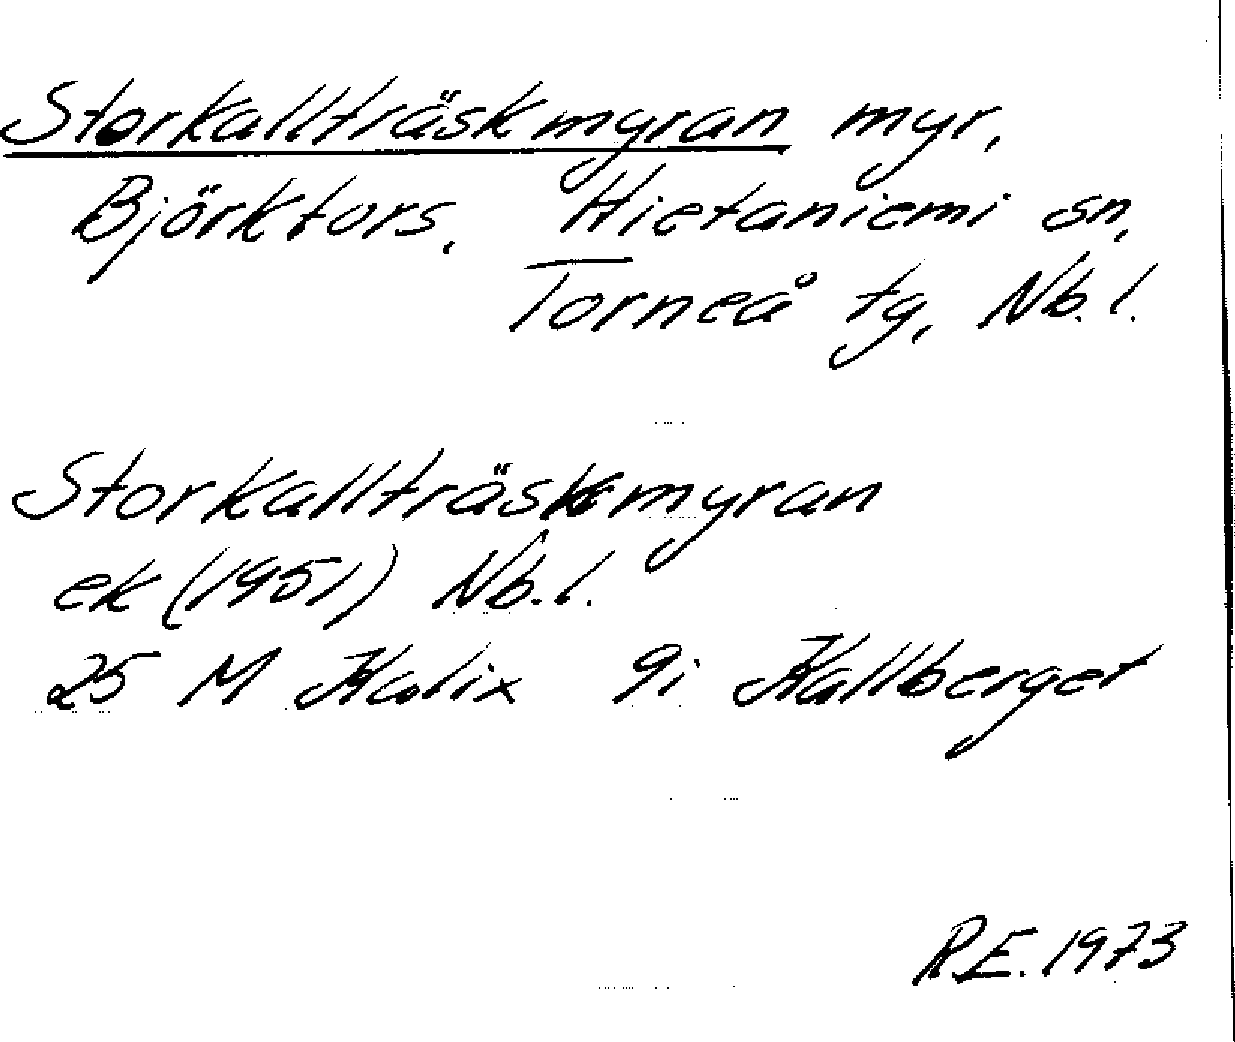 Storkallträskmyran myr,
Björkfors, Hietaniemi sn,
Torneå tg, Nb. l.
Storkallträskmyran
ek (1951) Nb. l.
25 M Kalix 9i Kallberget
R.E. 1973